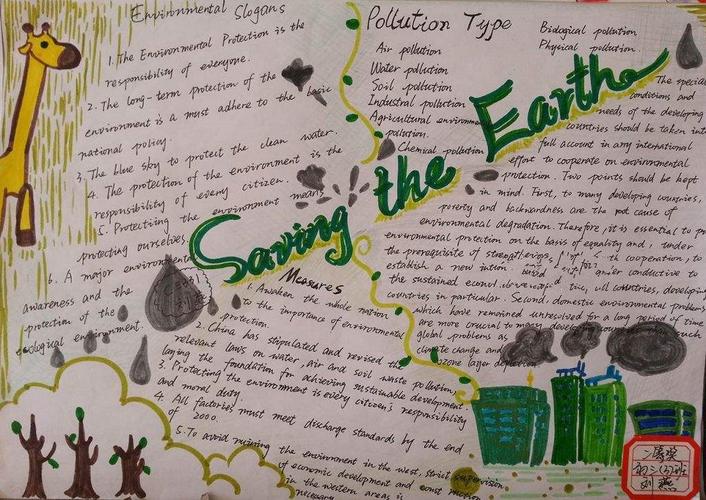 Environmental Slogans
1. The Environmental Protection is the
responsibility of everyone.
2. The long-term protection of the
environment is a must adhere to the basic
national policy.
3. The blue sky to protect the clean water.
4. The protection of the environment is the
responsibility of every citizen.
5. Protectiing the environment means
protecting ourselves
6. A major environmental
awareness and the
protection of the
ecological environment.
Pollution Type
Air pollution
Water pollution
Soil pollution
Industral pollution
Agricultural environment
pollution.
Chemical pollution
Biological pollution
Physical pollution.
Saving the Earth
The special
conditions and
needs of the developing
countries should be taken into
full account in any international
effort to cooperate on environmental
protection. Two points should be kept
in mind. First, to many developing countries,
poverty and backwardness are the root cause of
environmental degradation. Therefore, it is essential to
environmental protection on the basis of equality and, under
the prerequisite of the cooperation, to
establish a new conducive to
the sustained all countries, developing
countries in particular. Second, domestic environmental problems
which have remained unresolved for a long period of time
are more crucial to many such
global problems as
climate change and
ozone layer depletion
Measures
1. Awaken the whole nation
to the importance of environmental
protection.
2. China has stipulated and revised the
relevant laws on water, air and soil waste pollution,
laying the foundation for achieving sustainable development.
3. Protecting the environment is every citizen's responsibility
and moral duty.
4. All factories must meet discharge standards by the end
of 2000.
5. To avoid ruining the environment in the west, strict supervision
of economic development and construction
in the western areas is
necessary
初二(3)班
刘燕